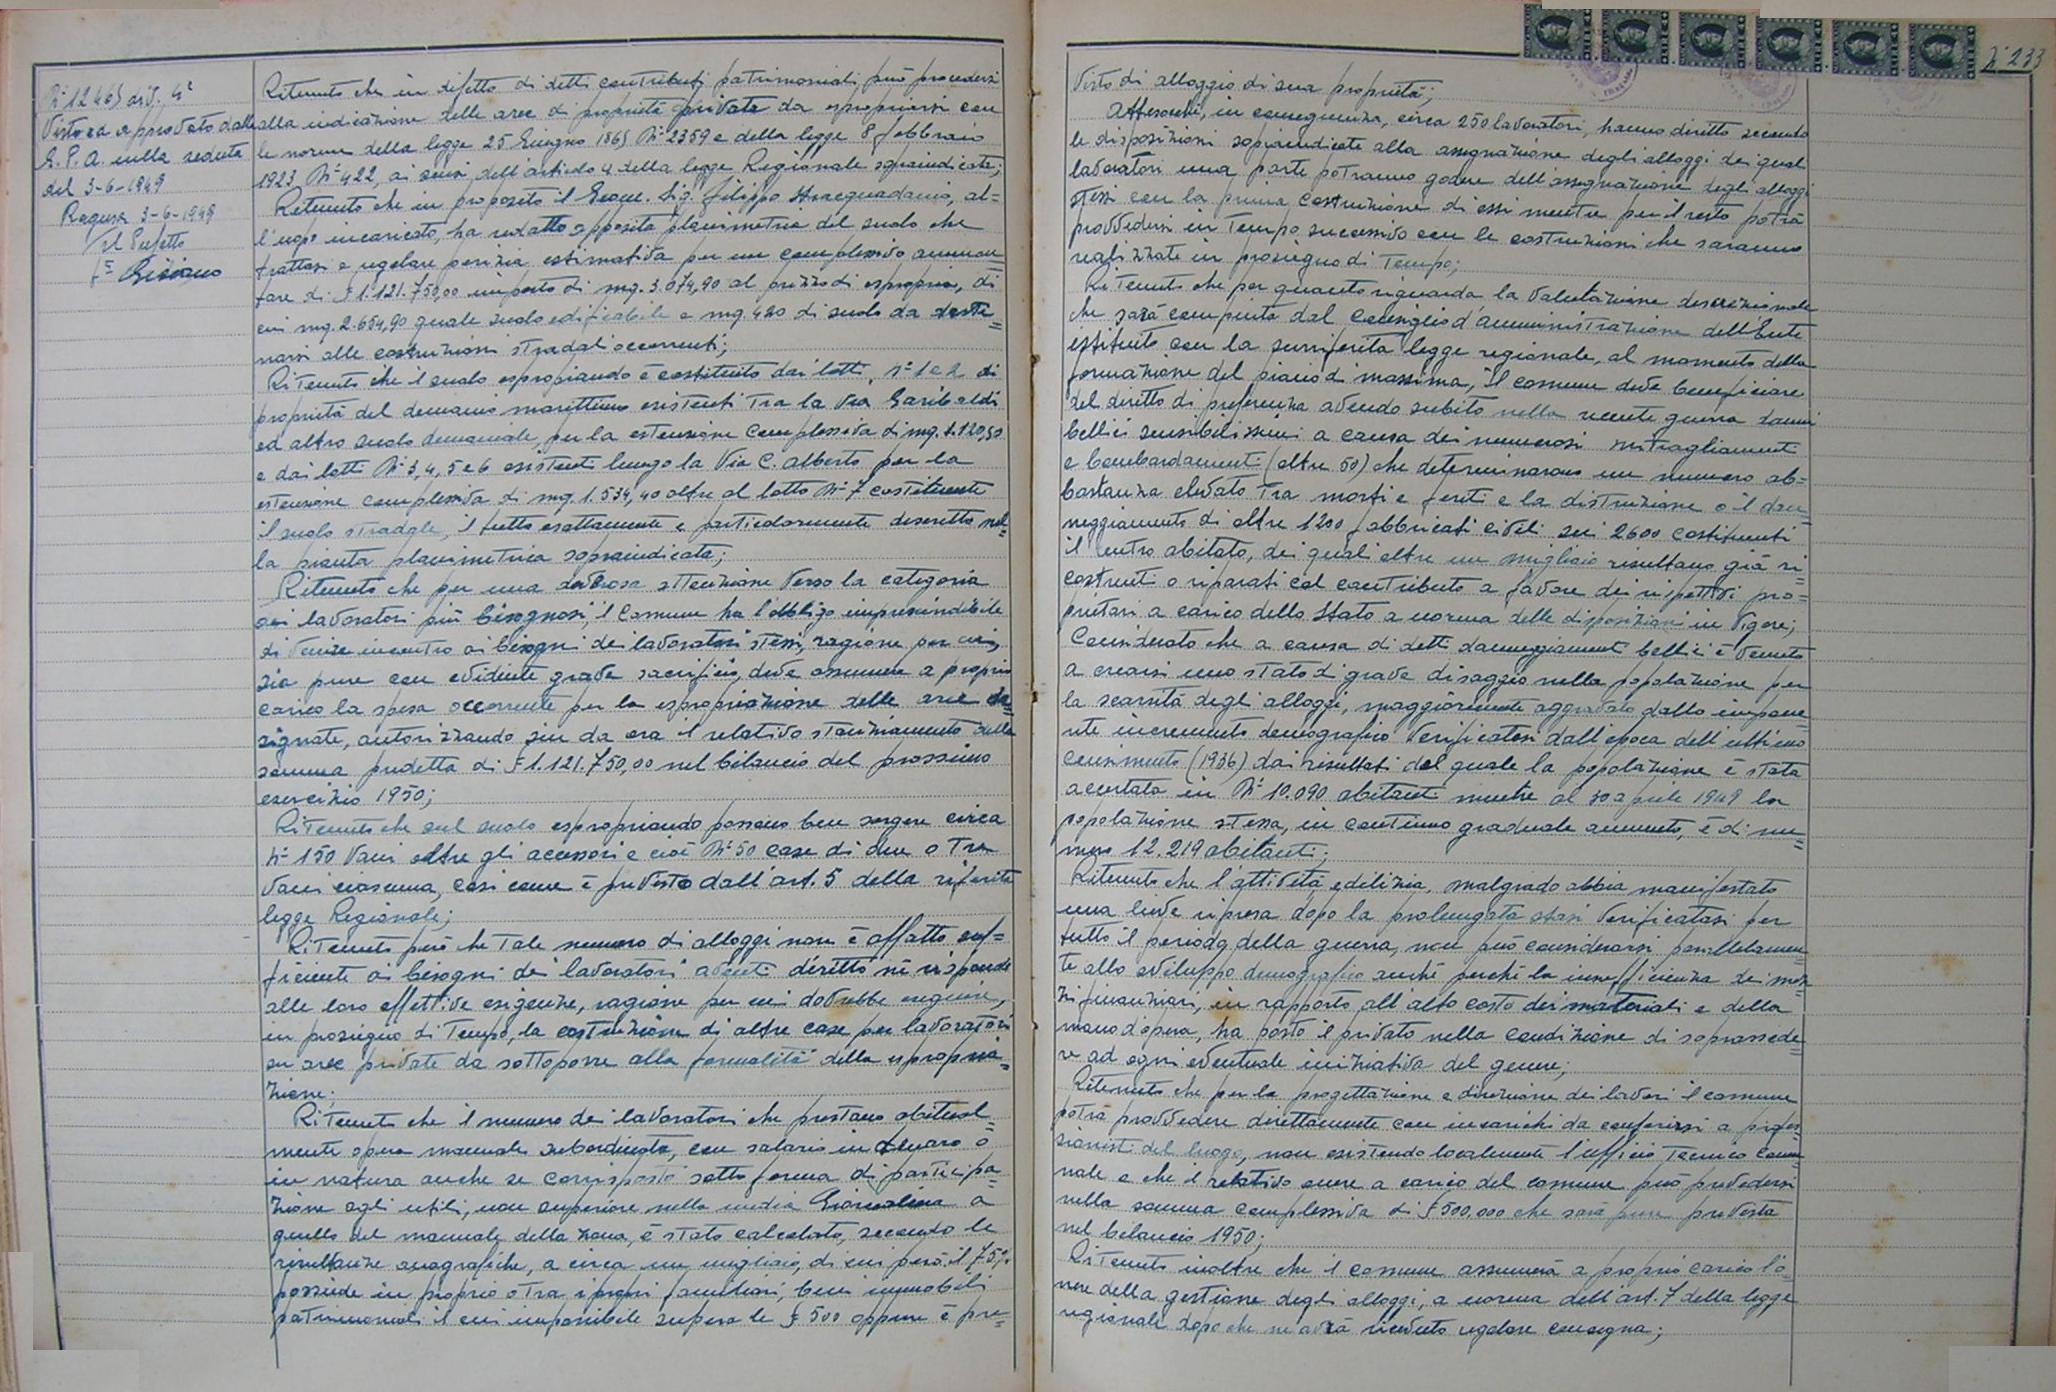 N° 12465 div. 4ª
Visto ed approvato dalla
G. P. A. nella seduta
del 3-6-1949
Ragusa 3-6-1949
Il Prefetto
Ritenuto che in difetto di detti contributi patrimoniali può procedersi
alla indicazione delle aree di proprietà privata da espropriarsi con
le norme della legge 25 Giugno 1865 N° 2359 e della legge 8 febbraio
1923 N° 422, ai sensi dell'articolo 4 della legge Regionale sopraindicata;
Ritenuto che in proposito il Geom. Sig. Filippo, al=
l'uopo incaricato, ha redatto apposita planimetria del suolo che
trattasi e regolare perizia estimativa per un complessivo ammon=
tare di £ 1.121.750,00 importo di mq. 3.074,90 al prezzo di esproprio, di
cui mq. 2.654,90 quale suolo edificabile e mq. 420 di suolo da desti=
narsi alle costruzioni stradali occorrenti;
Ritenuto che il suolo espropriando è costituito dai lotti, n° 1 e 2 di
proprietà del demanio marittimo esistenti tra la Via Garibaldi
ed altro suolo demaniale, per la estensione complessiva di mq. 1.120,50
e dai lotti N° 3, 4, 5 e 6 esistenti lungo la Via C. Alberto per la
estensione complessiva di mq. 1.534,40 oltre al lotto N° 7 costituente
il suolo stradale, il tutto esattamente e particolarmente descritto nel=
la pianta planimetrica sopraindicata;
Ritenuto che per una doverosa attenzione verso la categoria
dei lavoratori più bisognosi il Comune ha l'obbligo imprescindibile
di venire incontro ai bisogni dei lavoratori stessi, ragione per cui,
sia pure con evidente grave sacrificio, deve assumere a proprio
carico la spesa occorrente per la espropriazione delle aree de=
signate, autorizzando sin da ora il relativo stanziamento della
somma predetta di £ 1.121.750,00 nel bilancio del prossimo
esercizio 1950;
Ritenuto che sul suolo espropriando possono ben sorgere circa
N° 150 vani oltre gli accessori e cioè N° 50 case di due o tre
vani ciascuna, così come è previsto dall'art. 5 della riferita
legge Regionale;
Ritenuto però che tale numero di alloggi non è affatto suf=
ficiente ai bisogni dei lavoratori aventi diritto nè risponde
alle loro effettive esigenze, ragione per cui dovrebbe seguire,
in prosieguo di tempo, la costruzione di altre case per lavoratori
su aree private da sottoporre alla formalità della espropria=
zione;
Ritenuto che il numero dei lavoratori che prestano abitual=
mente opera manuale subordinata, con salario in denaro o
in natura anche se corrisposto sotto forma di partecipa=
zione agli utili, non superiore nella media giornaliera a
quello del manuale della zona, è stato calcolato, secondo le
risultanze anagrafiche, a circa un migliaio, di cui però il 75%
possiede in proprio o tra i propri familiari, beni immobili
patrimoniali il cui imponibile supera le £ 500 oppure è prov=
N° 233
visto di alloggio di sua proprietà;
Attesocchè, in conseguenza, circa 250 lavoratori, hanno diritto secondo
le disposizioni sopraindicate alla assegnazione degli alloggi dei quali
lavoratori una parte potranno godere dell'assegnazione degli alloggi
stessi con la prima costruzione di essi mentre per il resto potrà
provvedersi in tempo successivo con le costruzioni che saranno
realizzate in prosieguo di tempo;
Ritenuto che per quanto riguarda la valutazione discrezionale
che sarà compiuta dal Consiglio d'amministrazione dell'Ente
istituito con la surriferita legge regionale, al momento della
formazione del piano di massima, il comune deve beneficiare
del diritto di preferenza avendo subito nella recente guerra danni
bellici sensibilissimi a causa dei numerosi mitragliamenti
e bombardamenti (oltre 50) che determinarono un numero ab=
bastanza elevato tra morti e feriti e la distruzione o il dan=
neggiamento di oltre 1200 fabbricati civili sui 2600 costituenti
il centro abitato, dei quali oltre un migliaio risultano già ri=
costruiti o riparati col contributo a favore dei rispettivi pro=
prietari a carico dello Stato a norma delle disposizioni in vigore;
Considerato che a causa di detti danneggiamenti bellici è venuto
a crearsi uno stato di grave disaggio nella popolazione per
la scarsità degli alloggi, maggiormente aggravato dallo impone=
nte incremento demografico verificatosi dall'epoca dell'ultimo
censimento (1936) dai risultati del quale la popolazione è stata
accertata in N° 10.090 abitanti mentre al 30 aprile 1949 la
popolazione stessa, in continuo graduale aumento, è di nu=
mero 12.219 abitanti;
Ritenuto che l'attività edilizia, malgrado abbia manifestato
una lieve ripresa dopo la prolungata stasi verificatasi per
tutto il periodo della guerra, non può considerarsi parallelamen=
te allo sviluppo demografico anche perchè la insufficienza dei mez=
zi finanziari, in rapporto all'alto costo dei materiali e della
mano d'opera, ha posto il privato nella condizione di soprassede=
re ad ogni eventuale iniziativa del genere;
Ritenuto che per la progettazione e direzione dei lavori il comune
potrà provvedere direttamente con incarichi da conferirsi a profes=
sionisti del luogo, non esistendo localmente l'ufficio Tecnico Comu=
nale e che il relativo onere a carico del comune può prevedersi
nella somma complessiva di £ 500.000 che sarà pure prevista
nel bilancio 1950;
Ritenuto inoltre che il comune assumerà a proprio carico l'o=
nere della gestione degli alloggi, a norma dell'art. 7 della legge
regionale dopo che ne avrà ricevuto regolare consegna;